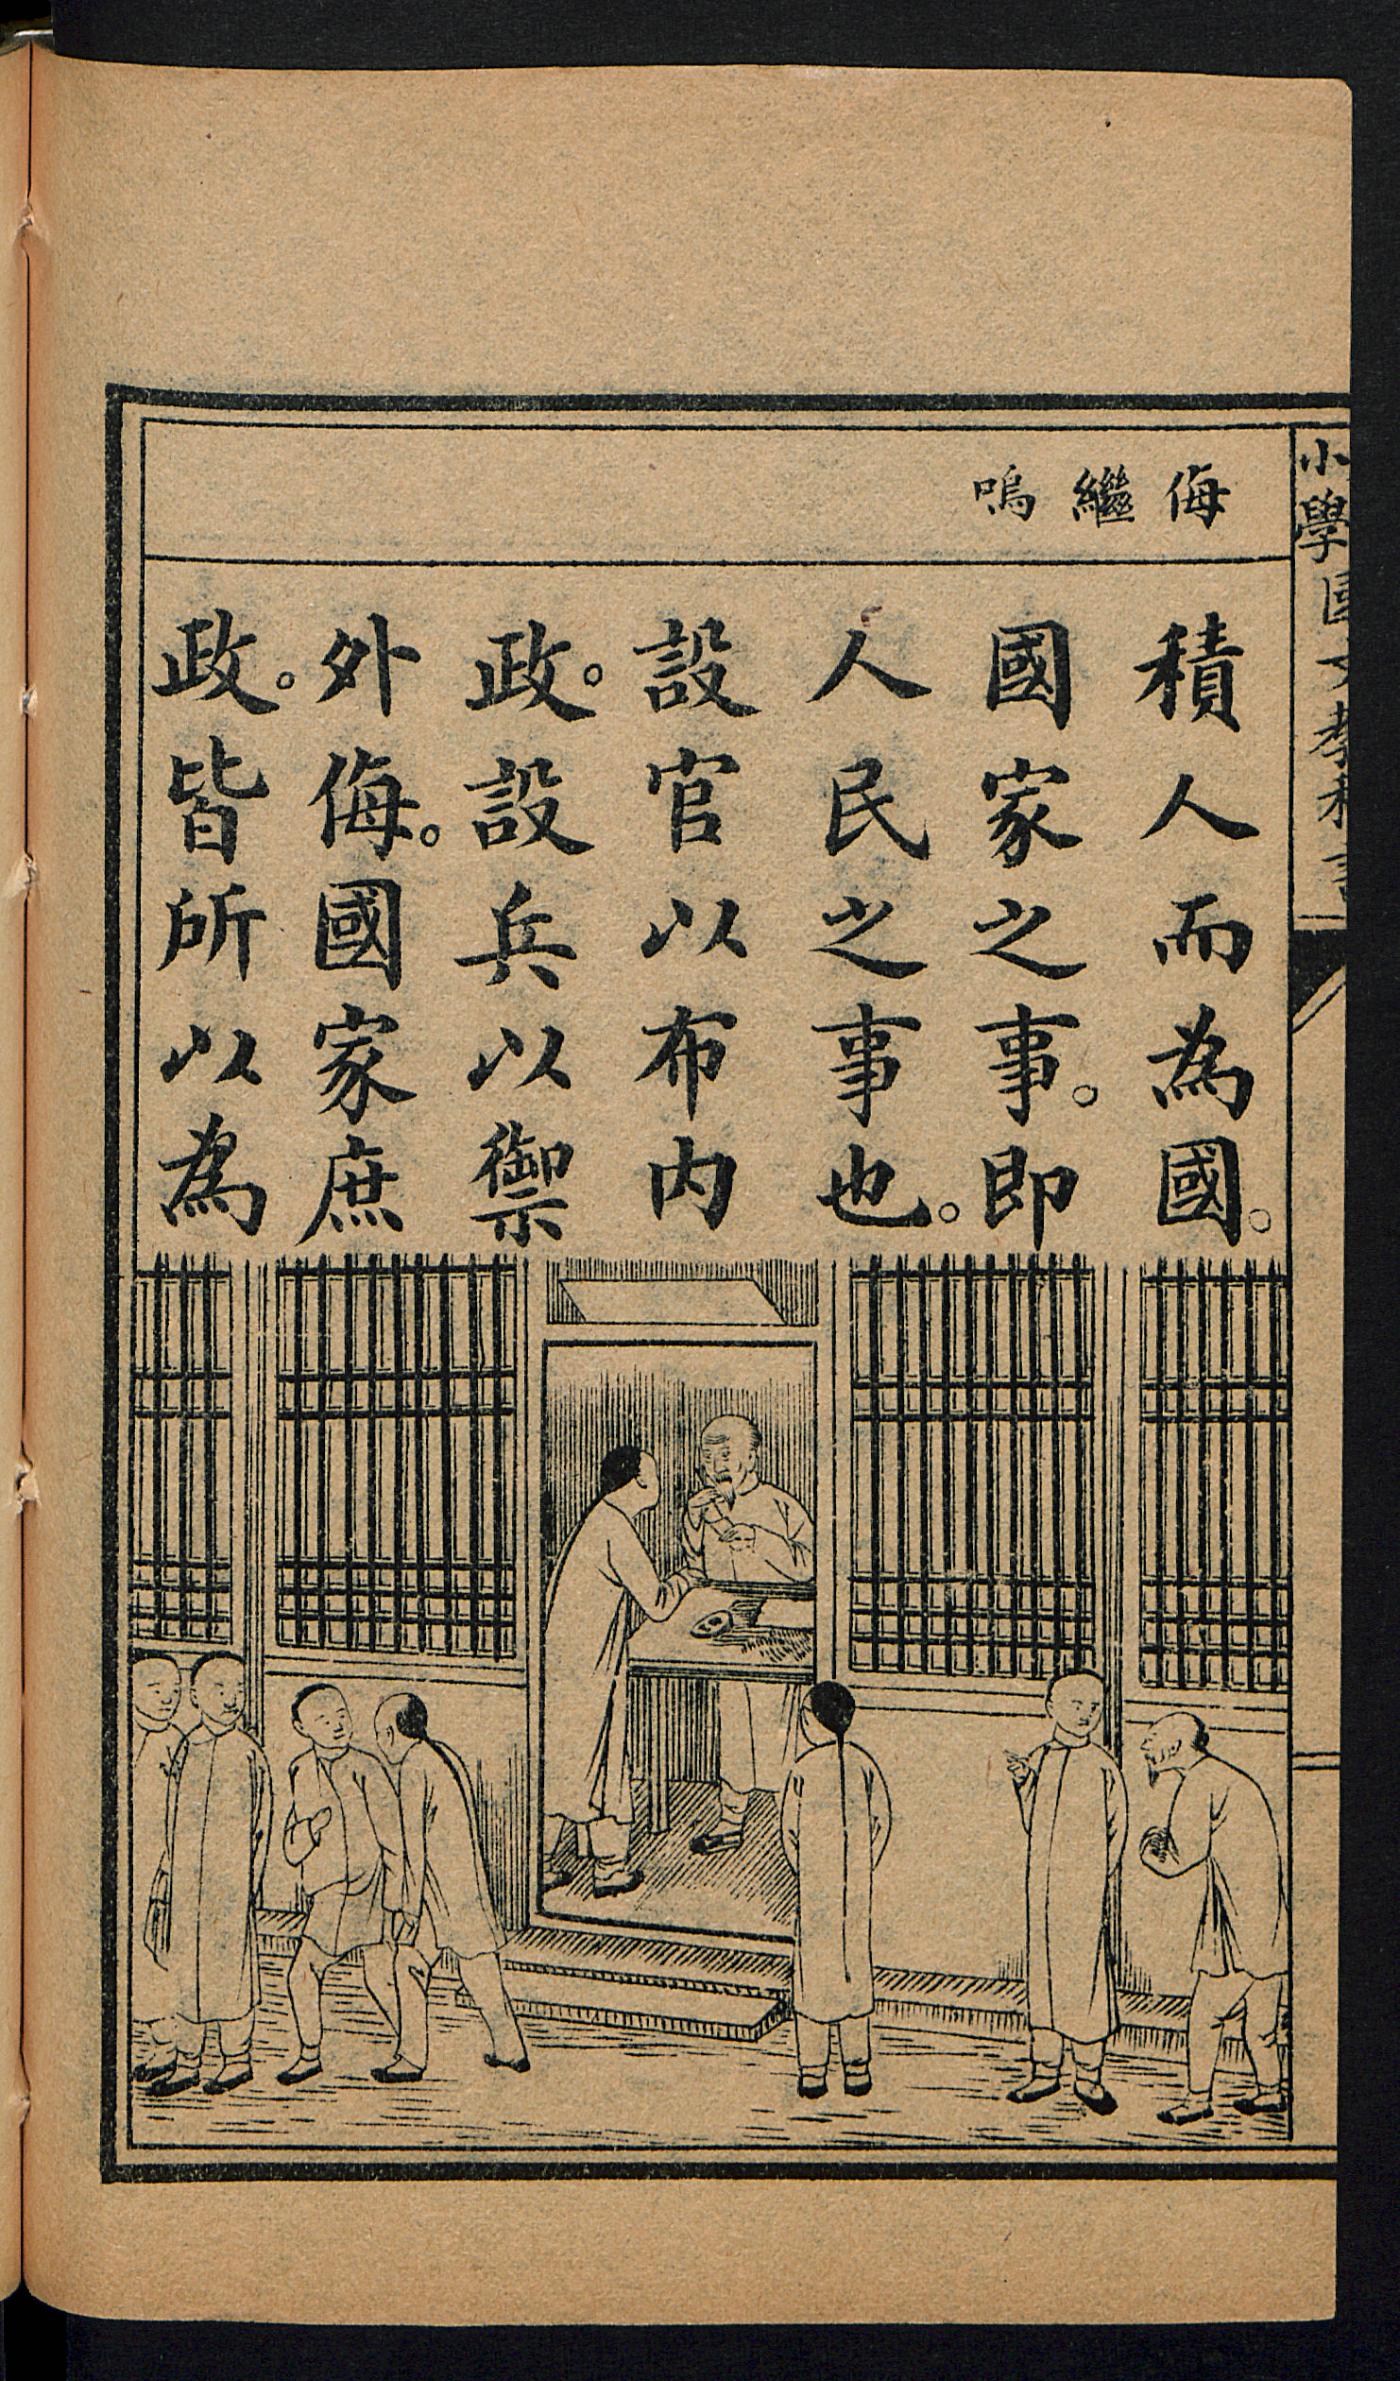 小學國文教科書
侮 繼 嗚
積人而為國。
國家之事。即
人民之事也。
設官以布内
政。設兵以禦
外侮。國家庶
政。皆所以為